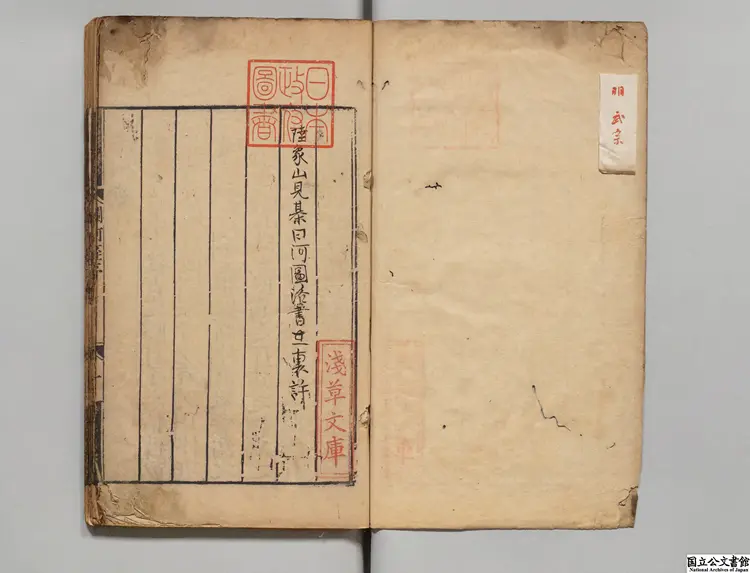 明 武宗
日本
政府
圖書
陸象山見棊曰河圖洛書在裏許
淺草文庫
国立公文書館
National Archives of Japan